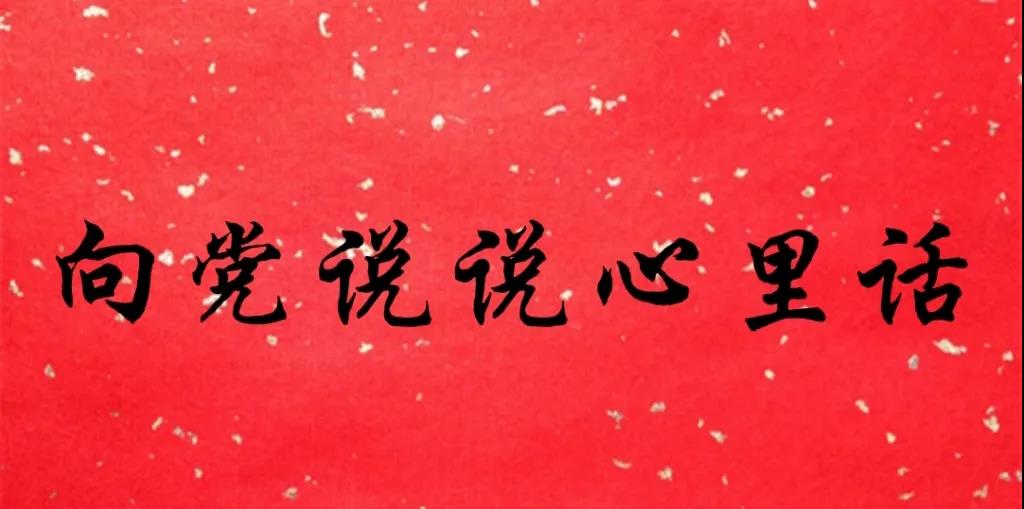 向党说说心里话